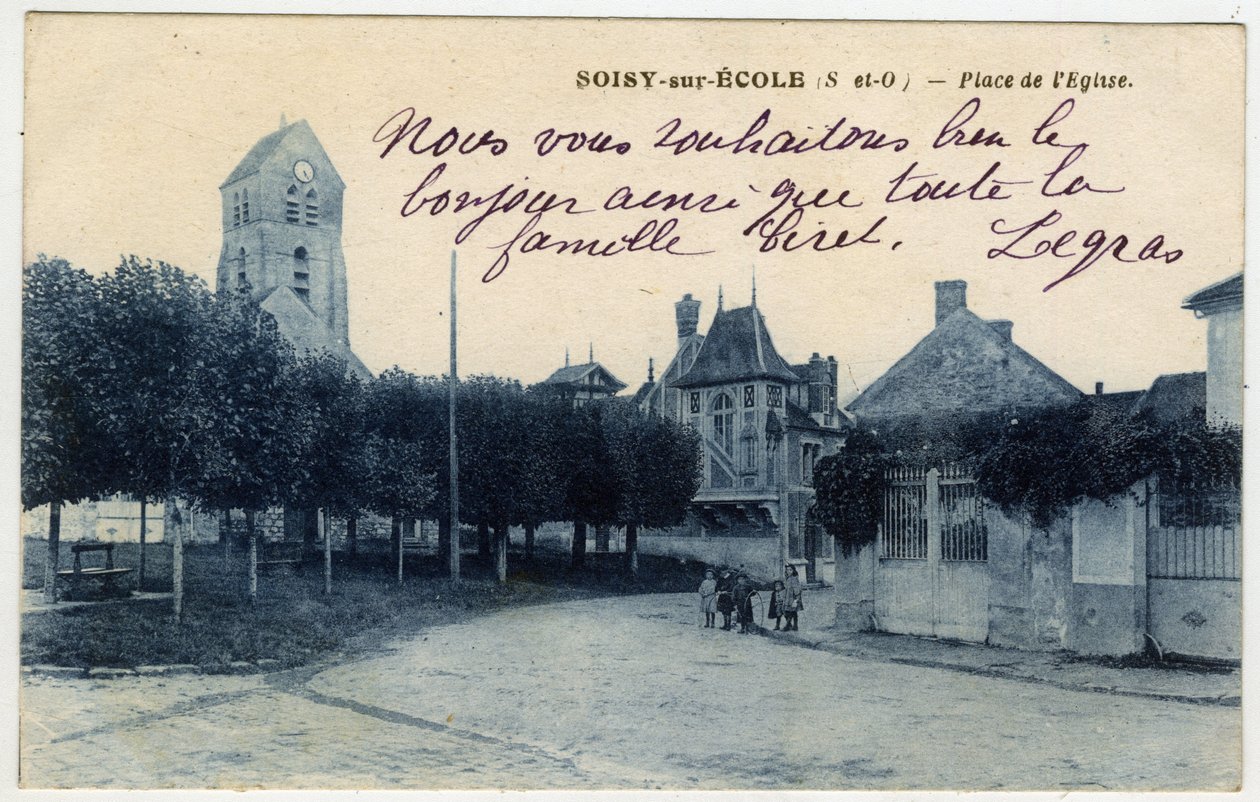 SOISY-sur-ÉCOLE (S et-O) — Place de l'Eglise.
Nous vous souhaitons bien le
bonjour ainsi que toute la
famille Biret. Legras